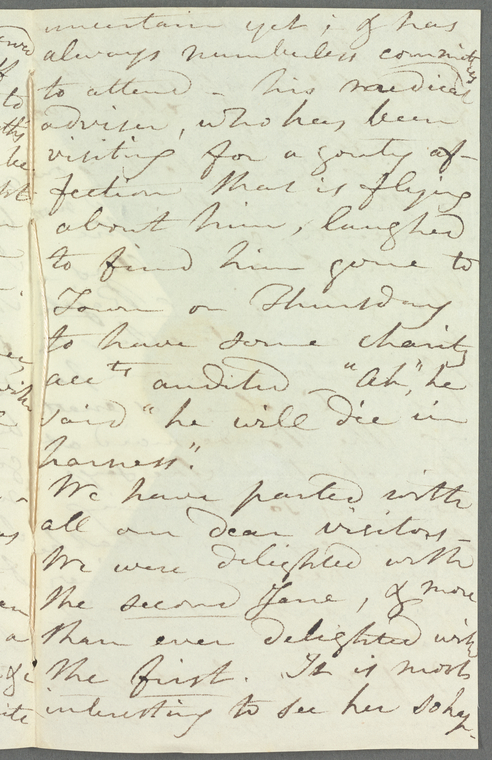 uncertain yet ; & has
always numberless committees
to attend – his medical
adviser, who has been
visiting for a gouty af-
fection that is flying
about him, laughed
to find him gone to
Town on Thursday
to have some charity
accts audited – "Ah", he
said "he will die in
harness".
We have parted with
all our dear visitors –
We were delighted with
the second Jane, & more
than ever delighted with
the first. It is most
interesting to see her so hap-